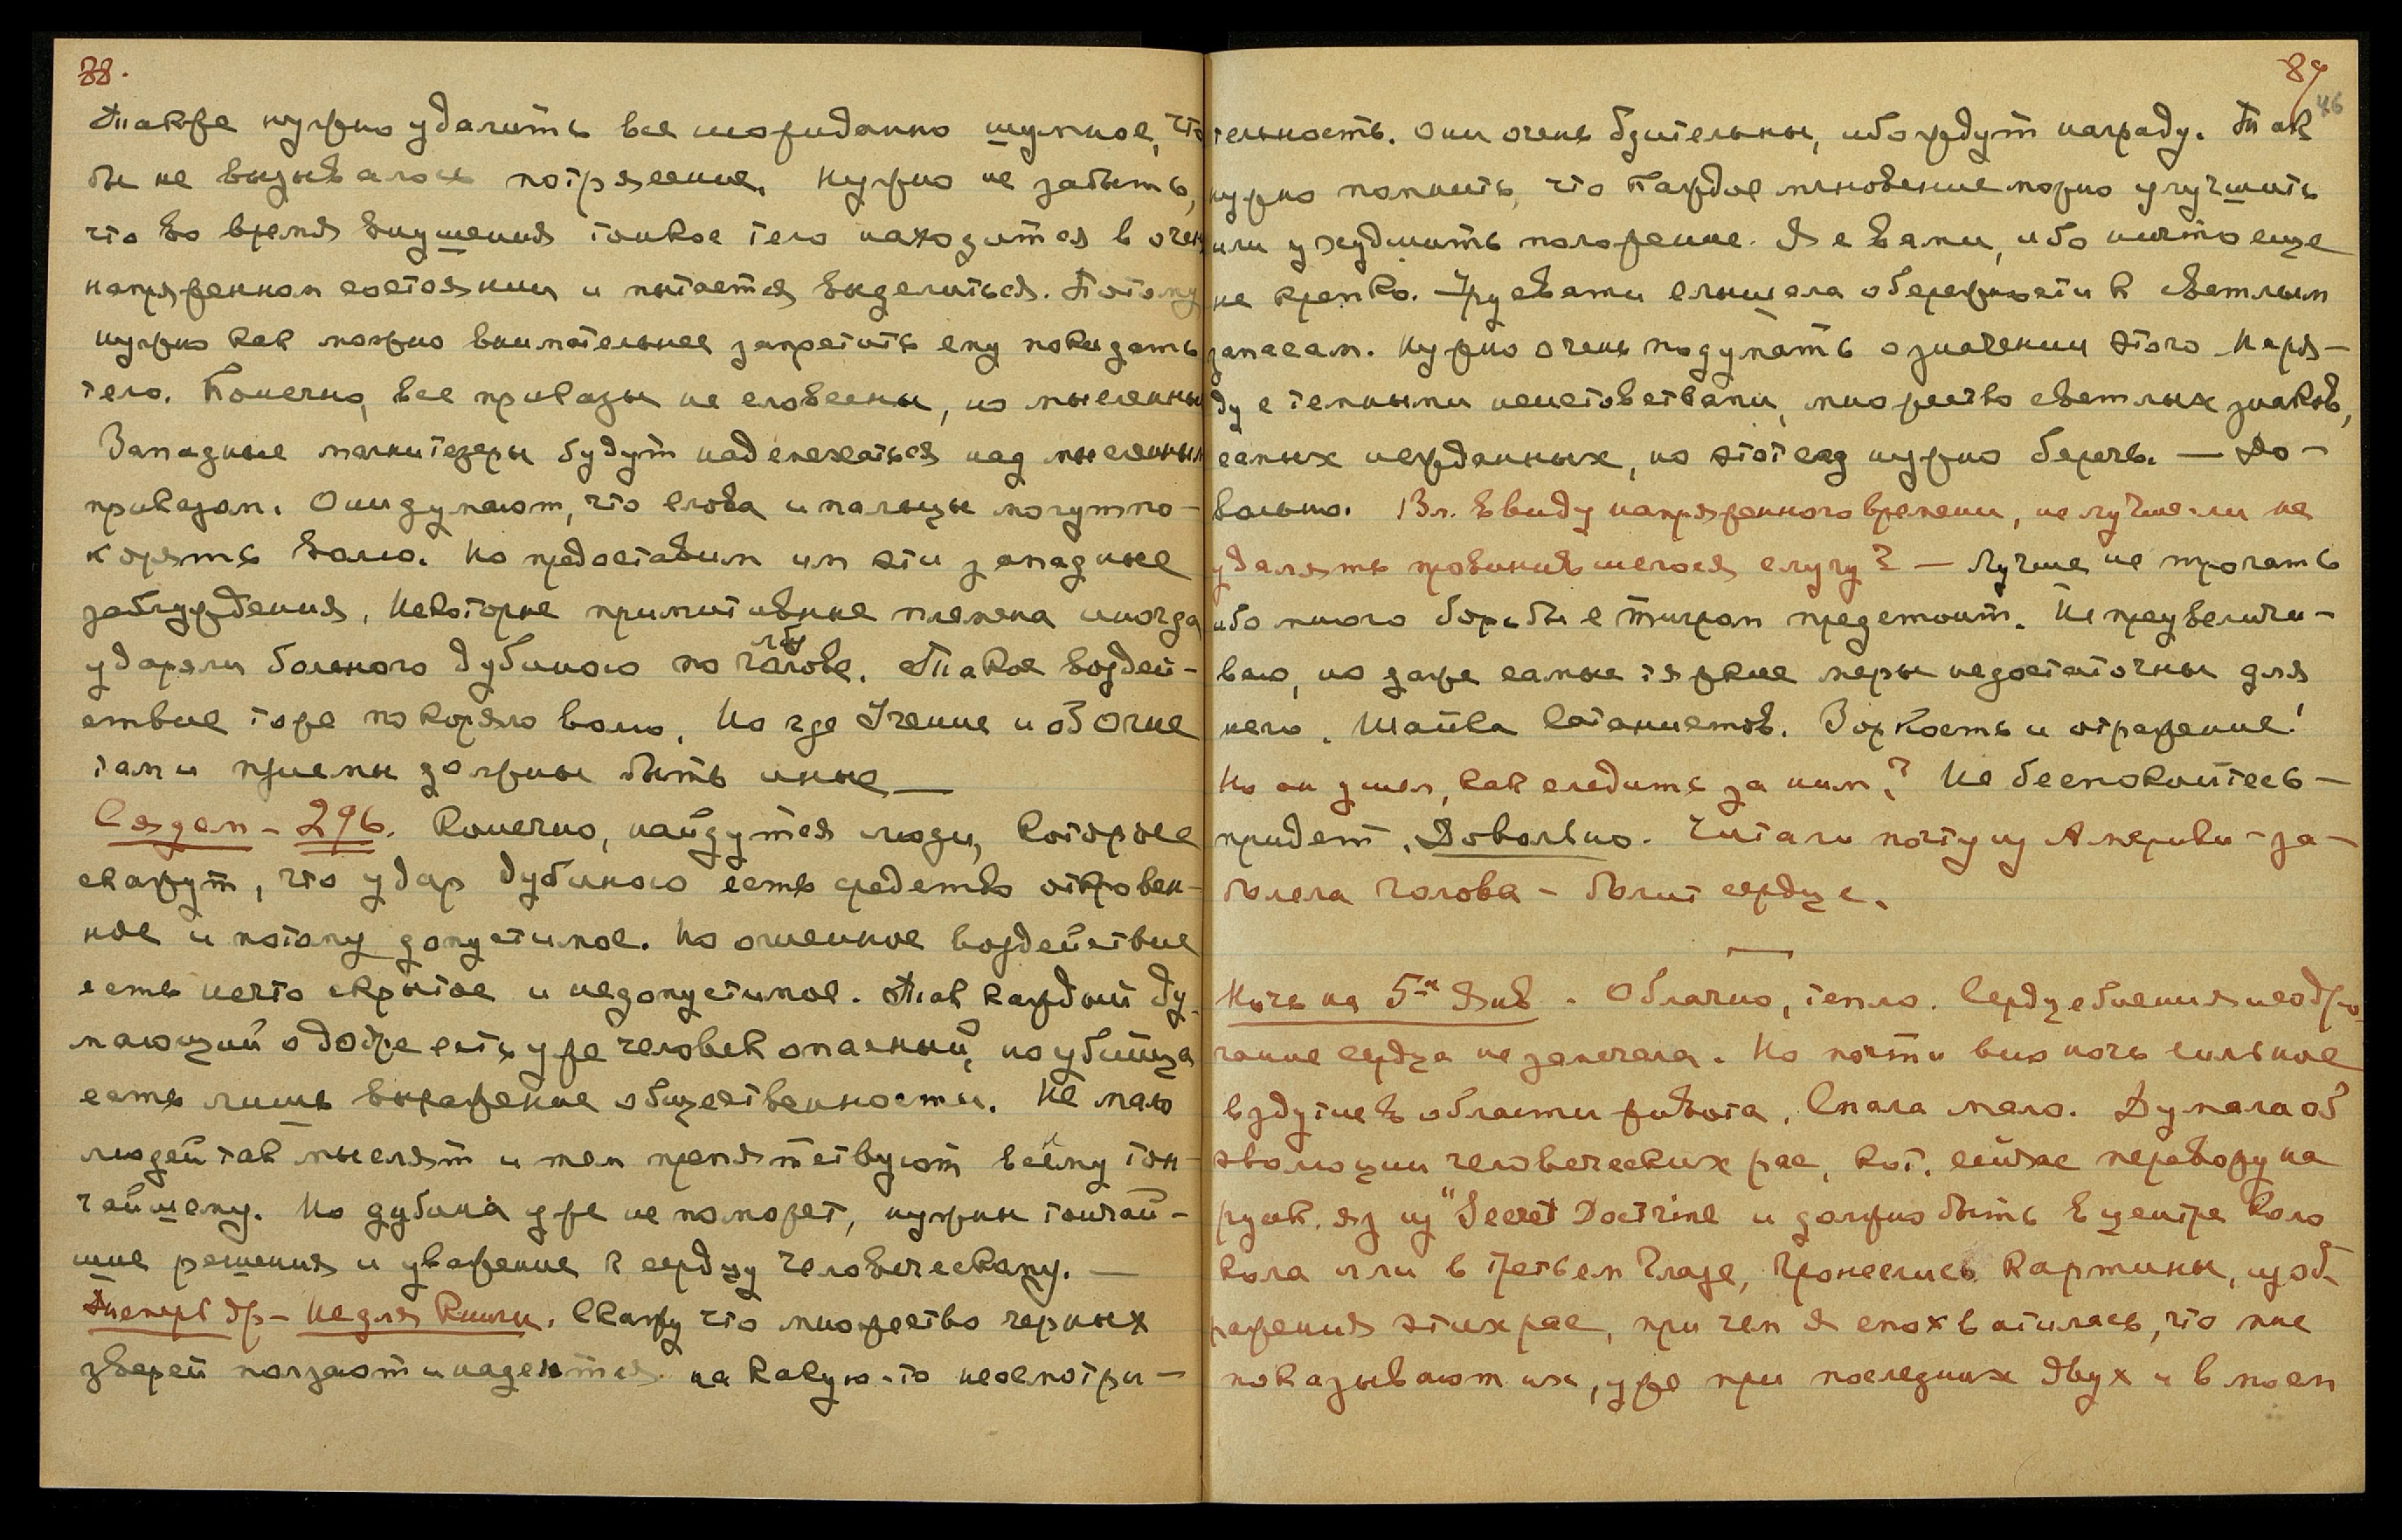 88.
Также нужно удалить все неожиданно шумное, что
бы не вызывалось потрясение. Нужно не забыть,
что во время внушения тонкое тело находится в очен
напряженном состоянии и пытается выделиться. Потому
нужно как можно внимательнее запретить ему покидать
тело. Конечно, все приказы не словесны, но мысленны
Западные магнитезеры будут надсмехаться над мысленным
приказом. Они думают, что слова и пальцы могут по-
корять волю. Но предоставим им эти западные
заблуждения. Некоторые примитивные племена иногда
ударяли больного дубиною по лбу. Такое воздей-
ствие тоже покоряло волю. Но где Учение и об Огне
там и приемы должны быть иные —
Сядем - 296. Конечно, найдутся люди, которые
скажут, что удар дубиною есть средство откровен-
ное и потому допустимое. Но огненное воздействие
есть нечто скрытое и недопустимое. Так каждый ду-
мающий о добре есть уже человек опасный, но убийца
есть лишь выражение общественности. Не мало
людей так мыслят и тем препятствуют всему тон-
чайшему. Но дубина уже не поможет, нужны тончай-
шие решения и уважение к сердцу человеческому. —
Теперь др - не для книги. Скажу что множество черных
зверей ползают и надеятся на какую-то неосмотри-
89
46
тельность. Они очень бдительны, ибо ждут награду. Так
нужно помнить, что каждое мгновение можно улучшить
или ухудшить положение. Я с вами, ибо ничто еще
не крепко. Урусвати слышала о бережности к светлым
запасам. Нужно очень подумать о значении этого. Наря-
ду с темными неистовствами, множество светлых знаков,
самых нежданных, но этот сад нужно беречь. — До-
вольно. Вл. Ввиду напряженного времени, не лучше ли не
удалять провинившегося слугу? — Лучше не трогать
ибо много борьбы с тигром предстоит. Не преувеличи-
ваю, но даже самые тяжкие меры недостаточны для
него. Шайка сатанистов. Зоркость и отражение!
Но он ушел, как следить за ним? Не беспокойтесь —
придет. Довольно. Читали почту из Америки - за-
болела голова - болит сердце.
—
Ночь на 5-ое Янв. Облачно, тепло. Сердцебиения и содро
гание сердца не замечала. Но почти всю ночь сильное
вздутие в области живота. Спала мало. Думала об
эволюции человеческих рас, кот. сейчас перевожу на
русск. яз из "Secret Doctrine и должно быть в центре Коло
кола или в третьем глазе, пронеслись картины, изоб-
ражения этих рас, при чем я спохватилась, что мне
показывают их, уже при последних двух и в моем